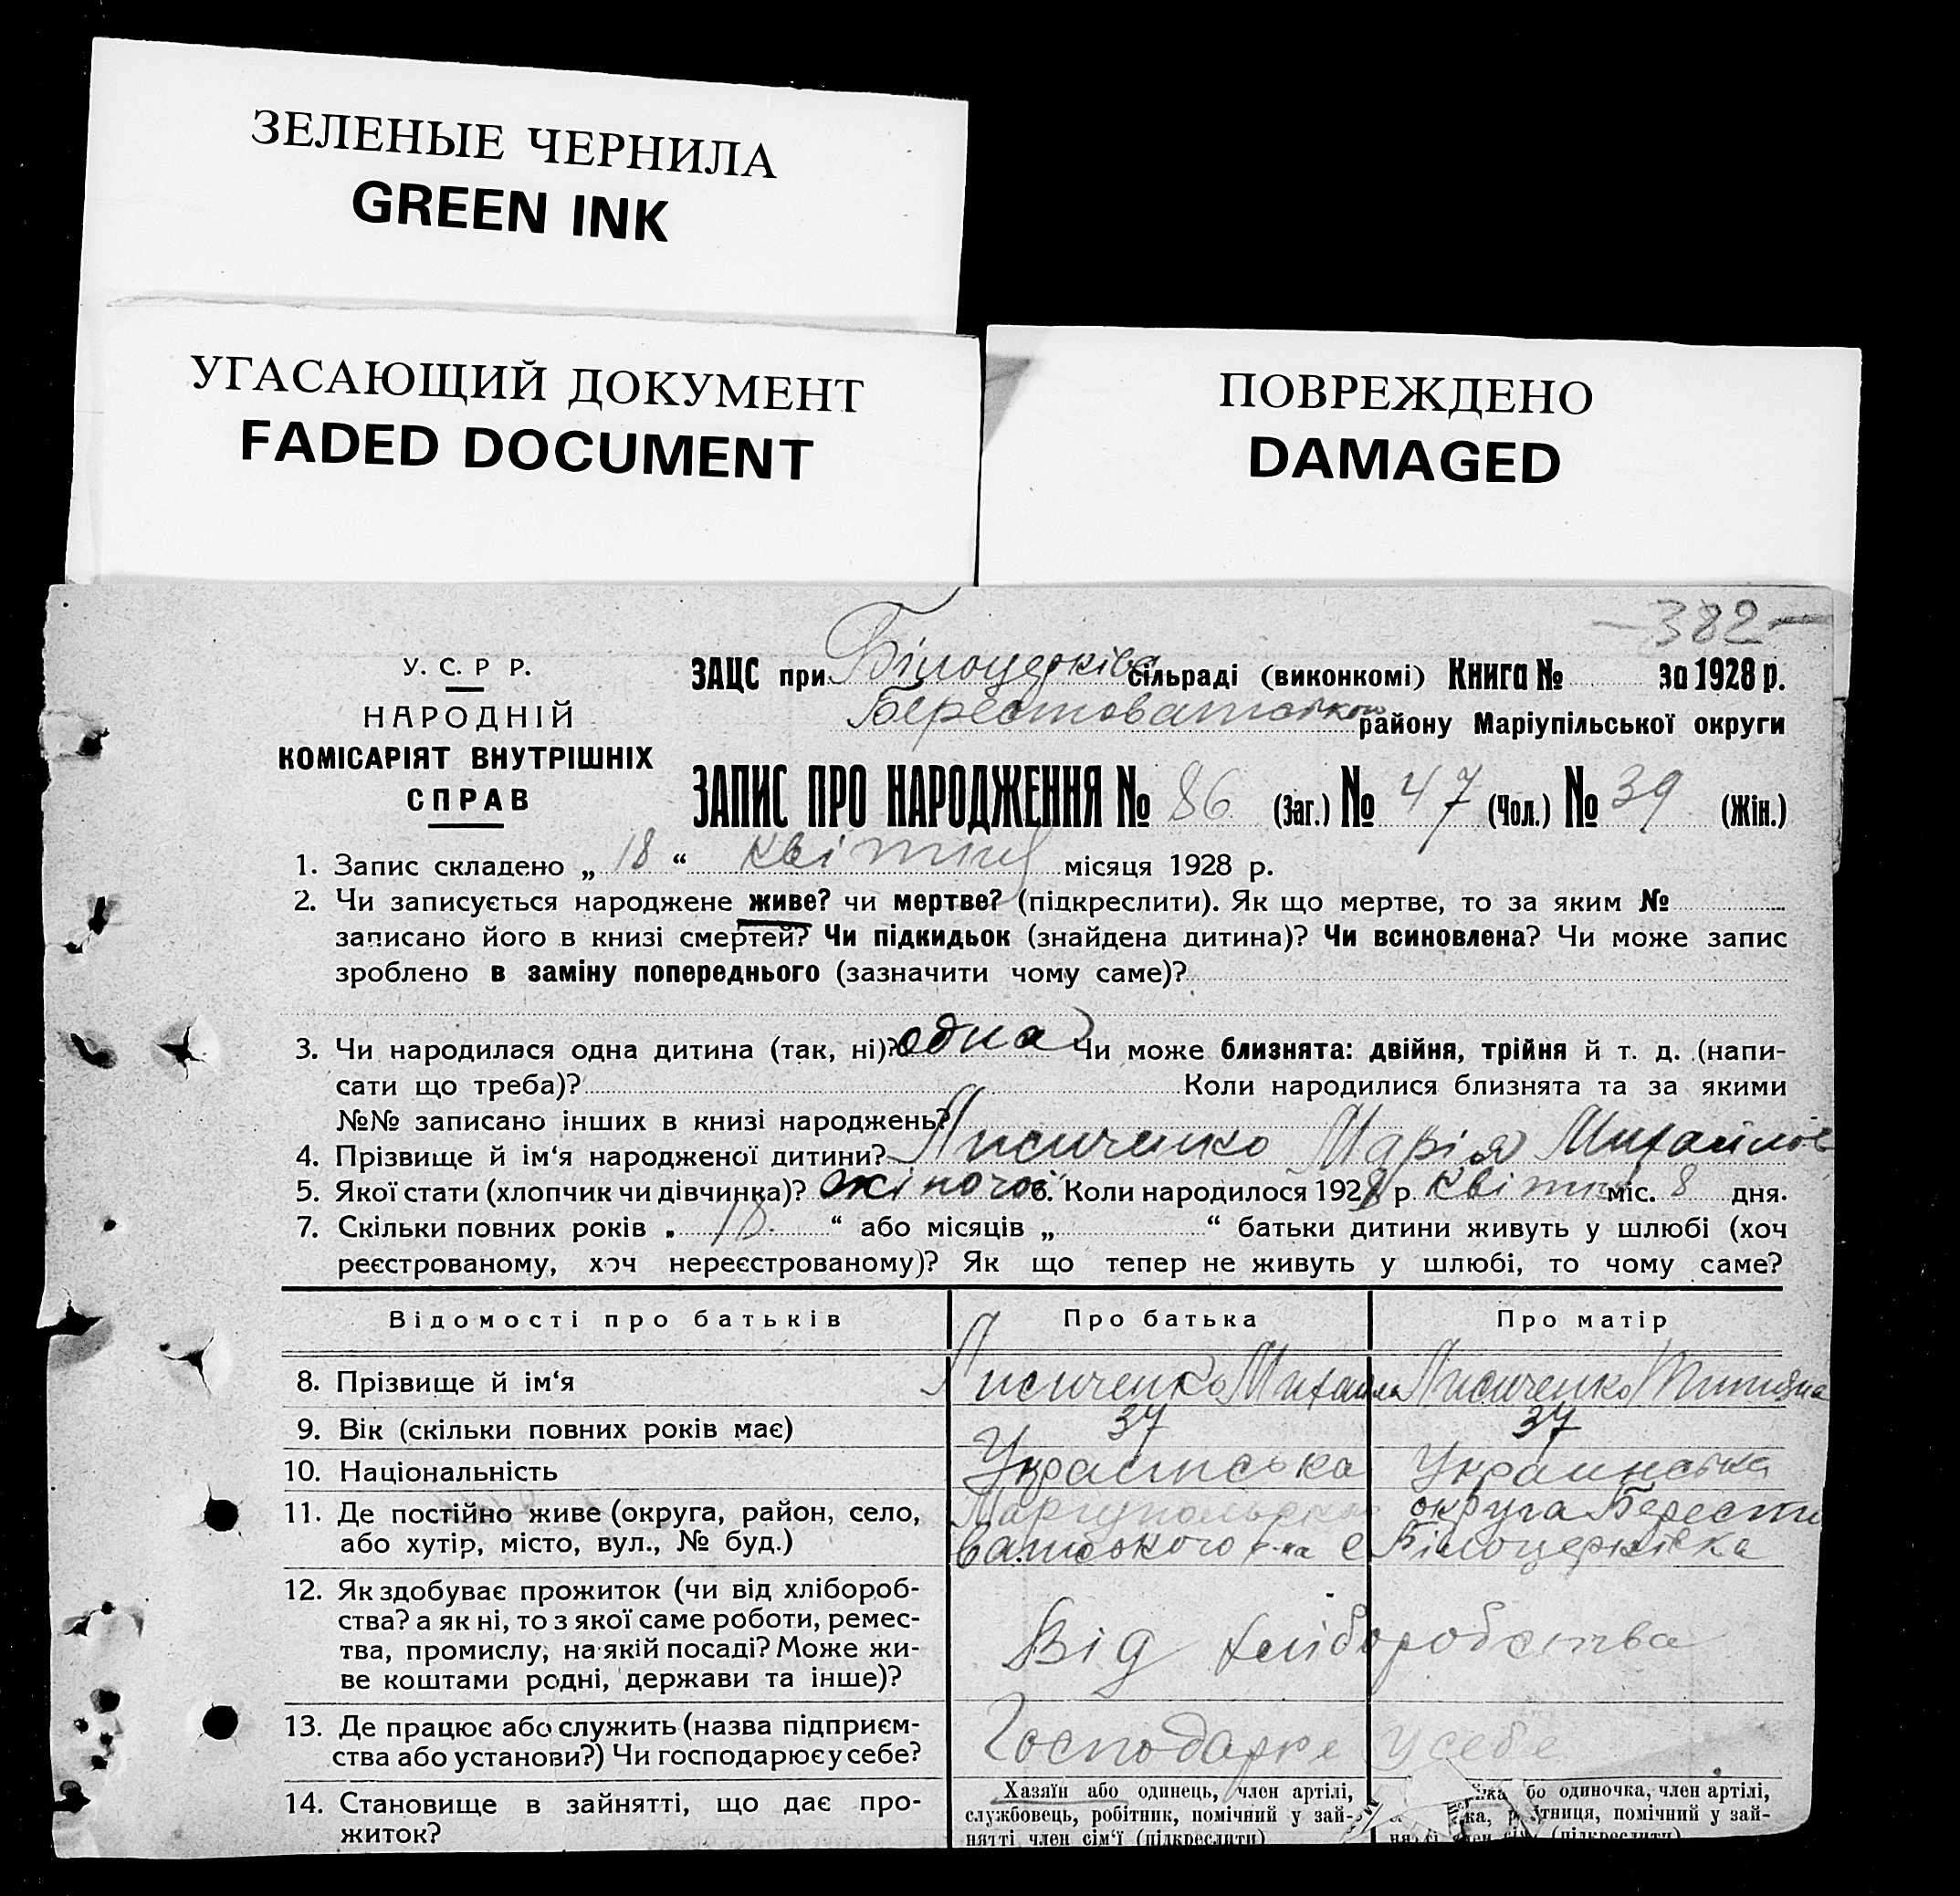 ЗЕЛЕНЫЕ ЧЕРНИЛА
GREEN INK
УГАСАЮЩИЙ ДОКУМЕНТ
FADED DOCUMENT
ПОВРЕЖДЕНО
DAMAGED
—382—
У. С. Р Р.
НАРОДНІЙ
КОМІСАРІЯТ ВНУТРІШНІХ
СПРАВ
ЗАЦС при Білоцерківс сільраді (виконкомі) Книга № за 1928 р.
району Маріупільської округи
ЗАПИС ПРО НАРОДЖЕННЯ № 86 (Заг.) № 47 (Чол.) № 39 (Жін.)
1. Запис складено „ 18 “ квітня місяця 1928 р.
2. Чи записується народжене живе? чи мертве? (підкреслити). Як що мертве, то за яким №
записано його в книзі смертей? Чи підкидьок (знайдена дитина)? Чи всиновлена? Чи може запис
зроблено в заміну попереднього (зазначити чому саме)?
3. Чи народилася одна дитина (так, ні)? одна Чи може близнята: двійня, трійня й т. д. (напи-
сати що треба)? Коли народилися близнята та за якими
№№ записано інших в книзі народжень?
4. Прізвище й ім‘я народженої дитини? Лисиченко Марія Михайлов
5. Якої стати (хлопчик чи дівчинка)? жіночої 6. Коли народилося 1928 р. квітня міс. 8 дня.
7. Скільки повних років „ 18. “ або місяців „ “ батьки дитини живуть у шлюбі (хоч
реєстрованому, хоч нереєстрованому)? Як що тепер не живуть у шлюбі, то чому саме?
Відомості про батьків Про батька Про матір
8. Прізвище й ім‘я Лисиченко Михайла Лисиченко
9. Вік (скільки повних років має) 37 37
10. Національність Українська Украинська
11. Де постійно живе (округа, район, село, округа Берести
або хутір, місто, вул., № буд.) ватського р-на с Білоцерківка
12. Як здобуває прожиток (чи від хлібороб-
ства? а як ні, то з якої саме роботи, ремес-
тва, промислу, на якій посаді? Може жи- Від хліборобства
ве коштами родні, держави та інше)?
13. Де працює або служить (назва підприєм- Господарює у себе
ства або установи?) Чи господарює у себе?
14. Становище в зайнятті, що дає про-
житок?
Хазяїн або одинець, член артілі,
службовець, робітник, помічний у зай-
нятті член сім‘ї (підкреслити)
бо одиночка, член артілі,
помічний у зай-
(підкреслити)